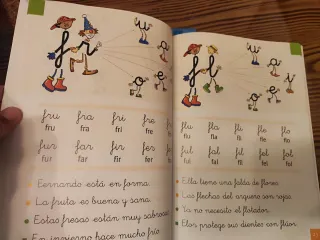 fru fra fri fre
fru fra fri fre
fur far fir fer
fur far fir fer
Fernando está en forma.
La fruta es buena y sana.
Estas fresas están muy sabrosas
En invierno hace mucho frío.
flu fla fli fle flo
flu fla fli fle flo
ful fal fil fel fol
ful fal fil fel fol
Ella tiene una falda de flores.
Las flechas del arquero son rojas.
Ya no necesito el flotador.
protege sus dientes con flúor.